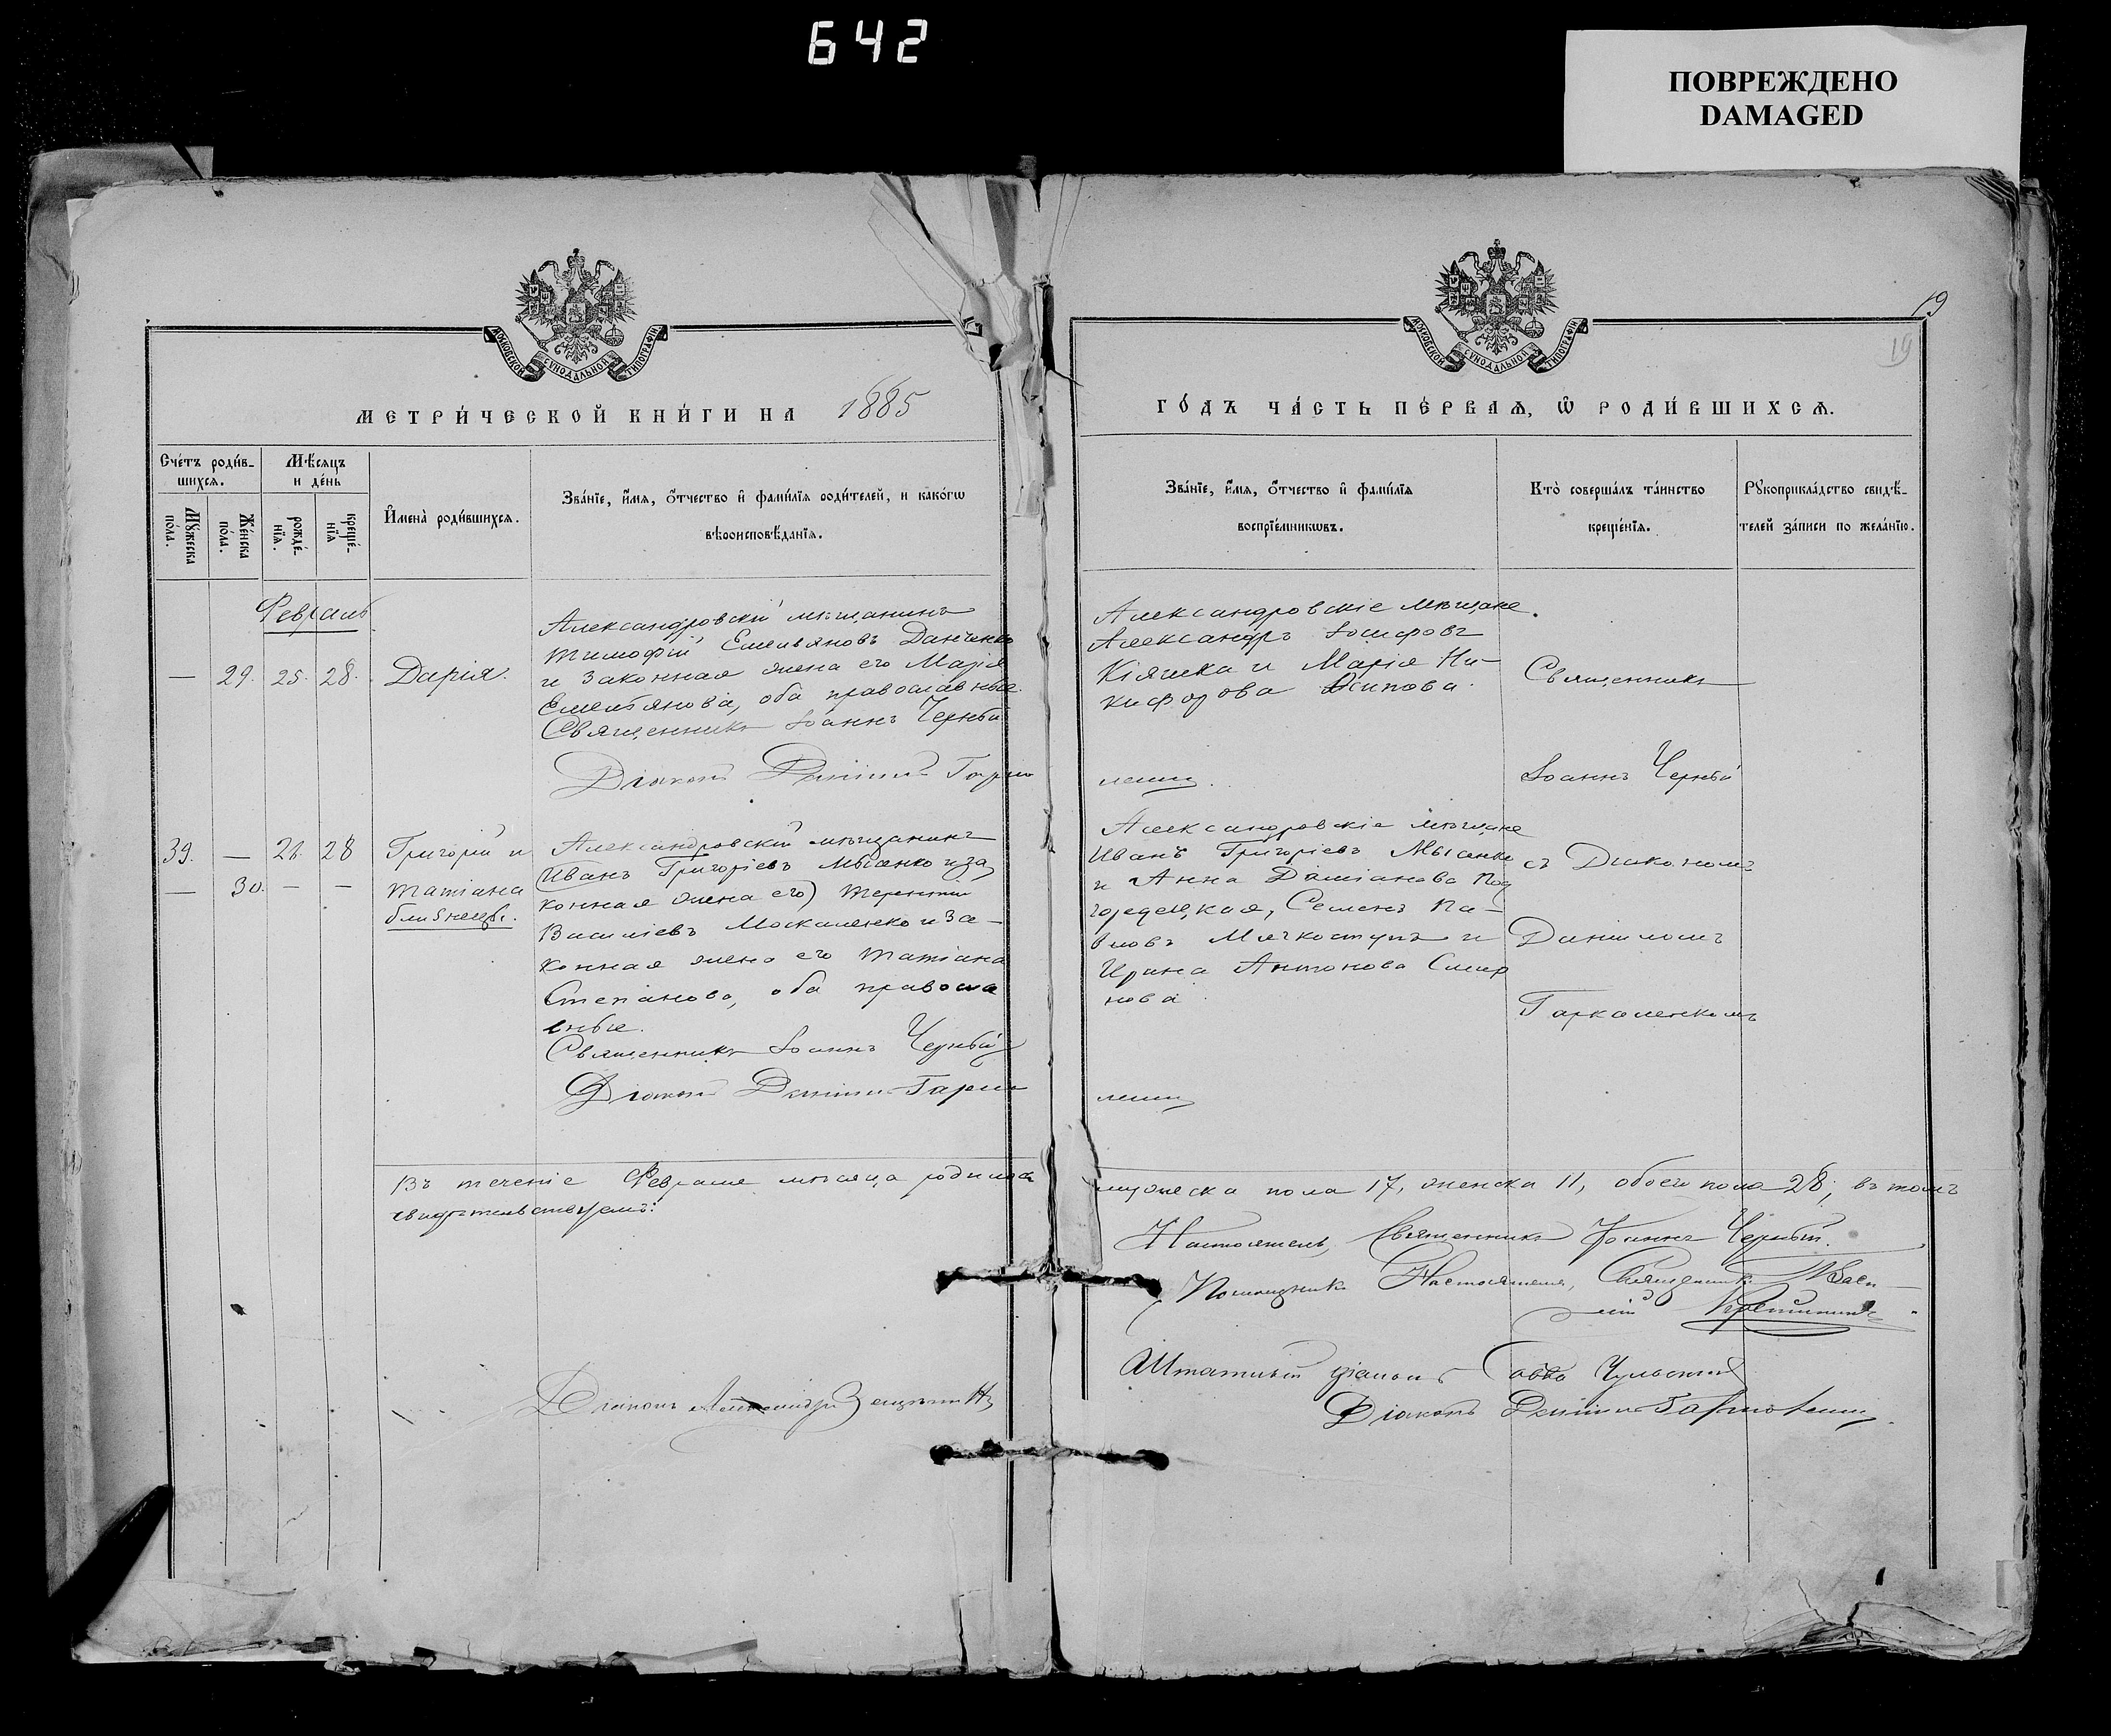 642
ПОВРЕЖДЕНО
DAMAGED
19
19
МОСКОВСКОЙ СУНОДАЛЬНОЙ ТИПОГРАФІИ
МОСКОВСКОЙ СУНОДАЛЬНОЙ ТИПОГРАФІИ
МЕТРИ́ЧЕСКОЙ КНИ́ГИ НА 1885
ГО́ДЪ ЧА́СТЬ ПЕ́РВАѦ, Ѽ РОДИ́ВШИХСѦ.
Сче́тъ роди́в-
шихсѧ.
Мꙋ́жеска
по́ла.
Же́нска
по́ла.
Мѣ́сяцъ
и де́нь
рожде́-
нїѧ.
креще́-
нїѧ
И҆мена̀ роди́вшихсѧ.
Зва́нїе, и҆́мѧ, ѻ҆́тчество и҆ фами́лїѧ роди́телей, и како́гѡ
вѣроисповѣ́данїѧ.
Зва́нїе, и҆́мѧ, ѻ҆́тчество и҆ фами́лїѧ
воспрїе́мникѡвъ.
Кто̀ соверша́лъ та́инство
креще́нїѧ.
Рꙋкоприкла́дство свидѣ́-
телей за́писи по жела́нїю.
Февраль
— 29. 25. 28. Дарія.
Александровскій мѣщанинъ
Тимофій Емельяновъ Данченко
и законная жена его Марія
Емельянова, оба православные.
Священникъ Іоаннъ Черный
Діаконъ Даніилъ Гарко
Александровскіе мѣщане
Александръ Іосифовъ
Кіяшка и Марія Ни-
кифорова Осипова.
ленко.
Священникъ
Іоаннъ Черный
39. — 28 Григорій и
— 30. — — Татіана
близнецы.
Александровскій мѣщанинъ
(Иванъ Григоріевъ Мысенко и за
конная жена его) Терентій
Василіевъ Москаленко и за-
конная жена его Татіана
Степанова, оба правосла
вные.
Священникъ Іоаннъ Черный
Діаконъ Даніилъ Гарко
Александровскіе мѣщане
Иванъ Григоріевъ Мысенко
и Анна Даміанова Под
городецкая, Семенъ Па-
вловъ Мягкоступъ и
Ирина Антонова Смир
нова.
ленко
съ Діакономъ
Даніиломъ
Гаркаленкомъ
Въ теченіе Февраля мѣсяца родилось
свидѣтельствуемъ:
мужеска пола 17, женска 11, обоего пола 28, въ томъ
Настоятель, Священникъ Іоаннъ Черный.
Помощникъ Настоятеля, Священникъ Васи-
лій
Штатный діаконъ
Діаконъ Даніилъ Гарколенко.
Діаконъ Александръ